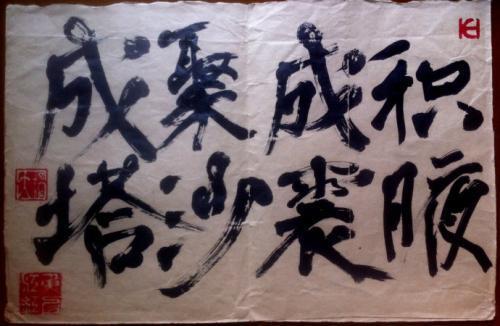 积腋
成裘
聚沙
成塔